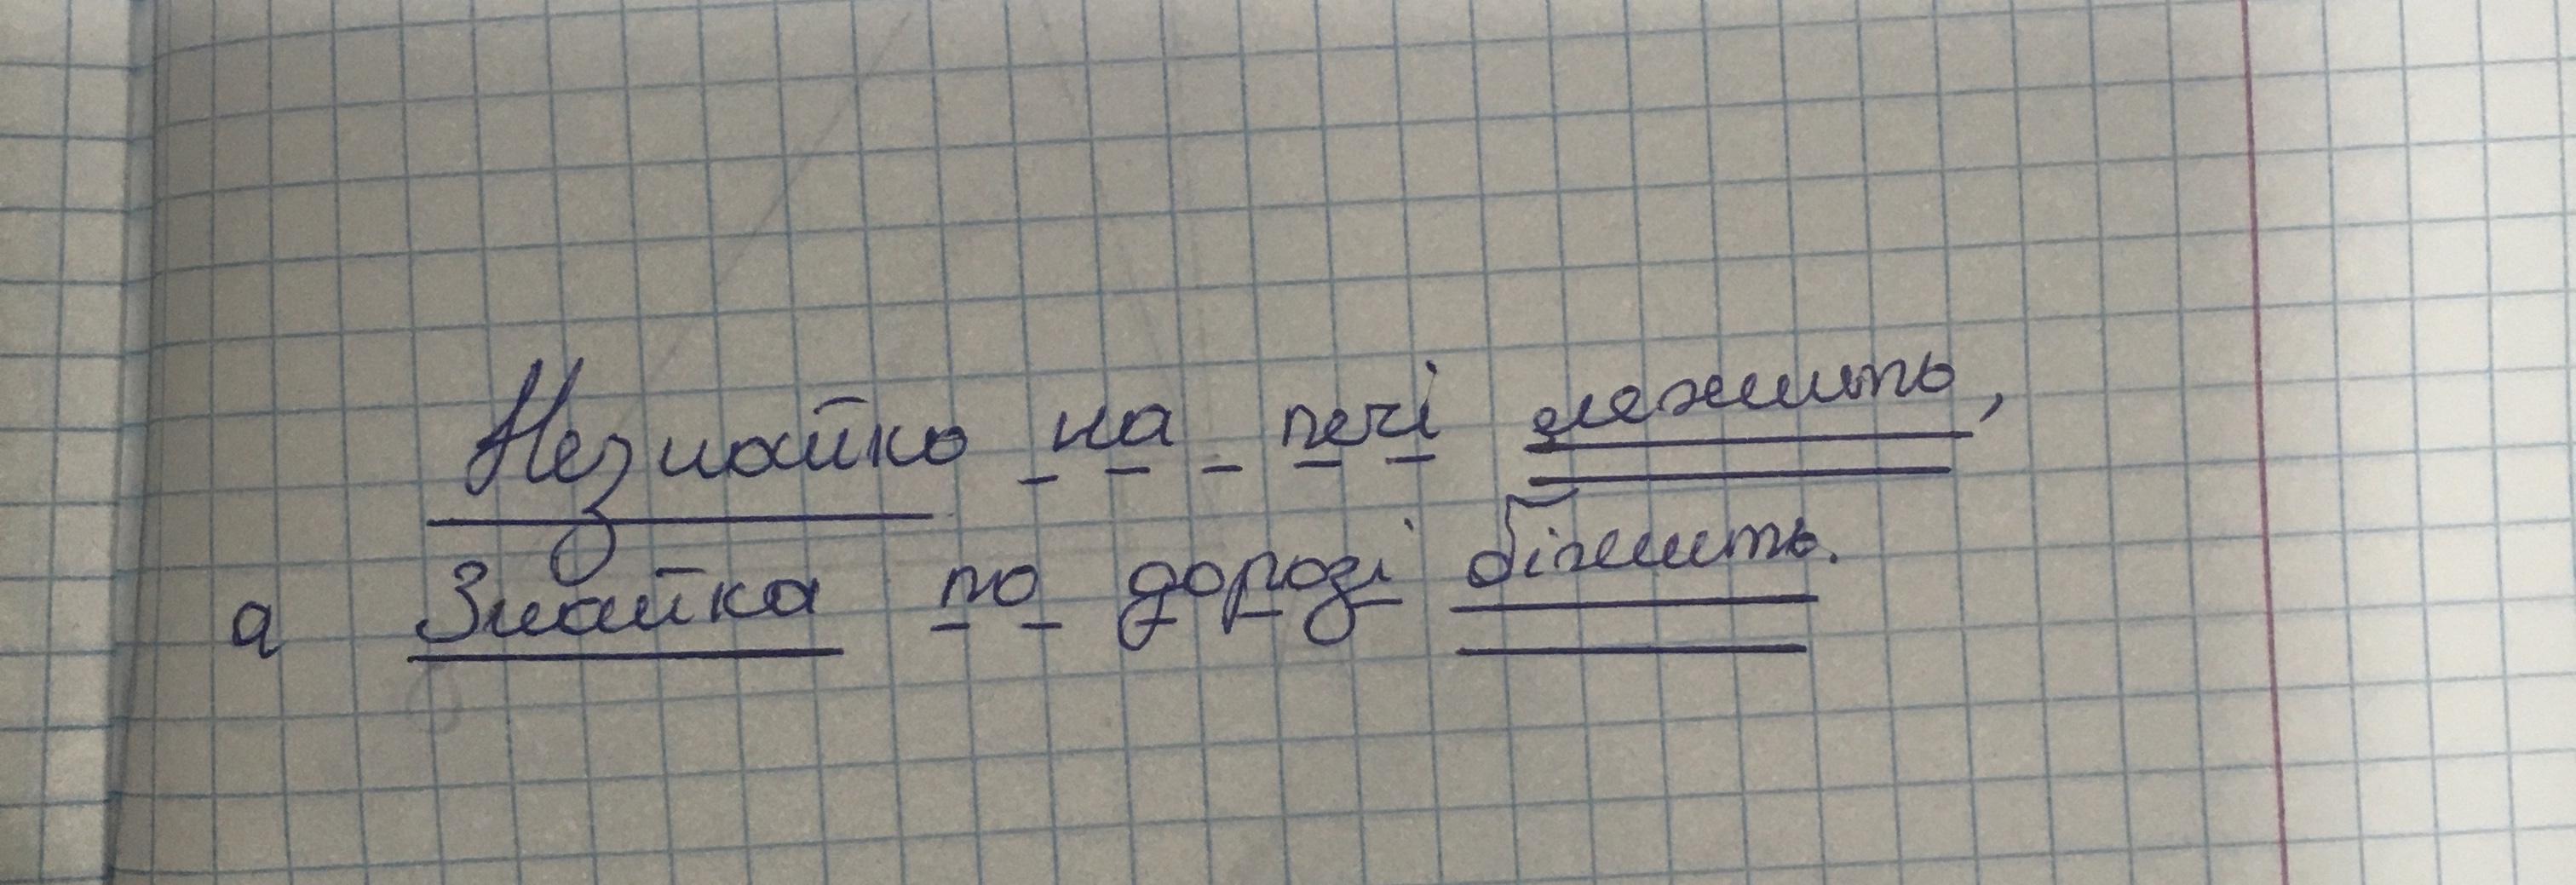 Незнайко на печі лежить,
а Знайка по дорозі біжить.